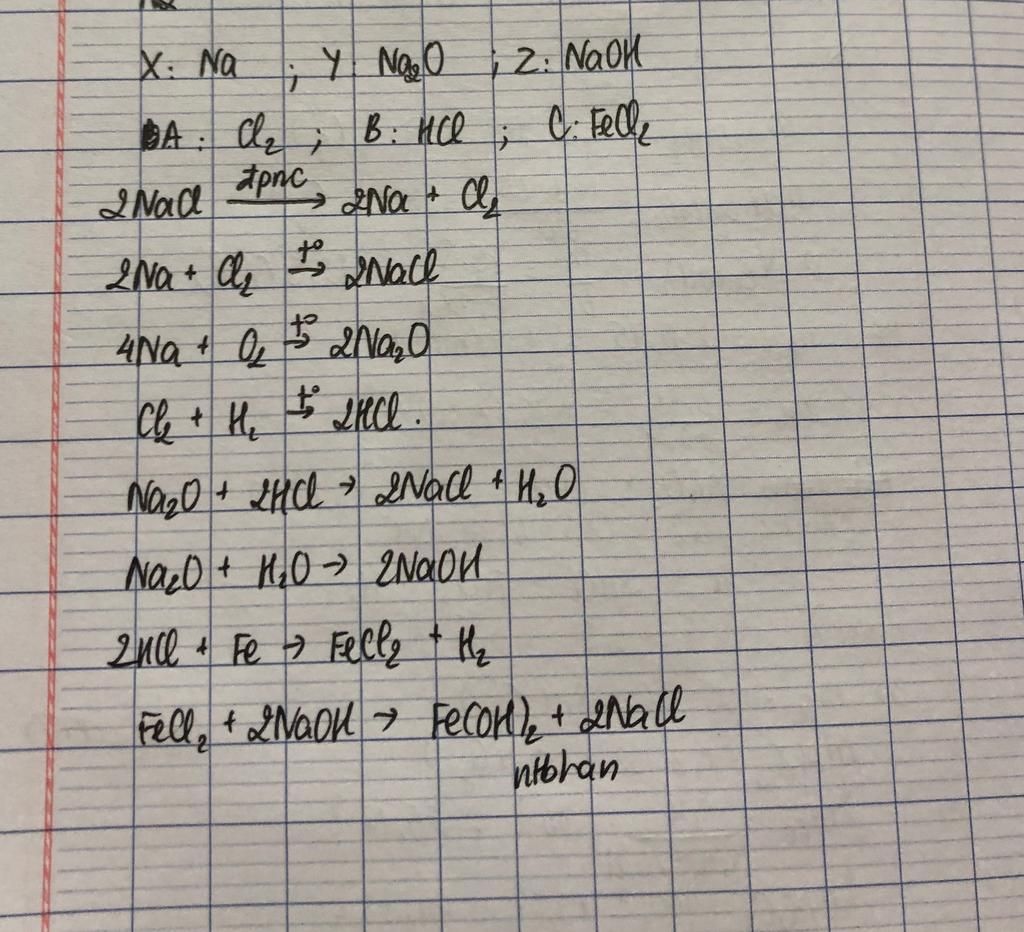 X: Na ; Y: Na₂O ; Z: NaOH
A: Cl₂ ; B: HCl ; C: FeCl₂
2NaCl đpnc → 2Na + Cl₂
2Na + Cl₂ t° → 2NaCl
4Na + O₂ t° → 2Na₂O
Cl₂ + H₂ t° → 2HCl.
Na₂O + 2HCl → 2NaCl + H₂O
Na₂O + H₂O → 2NaOH
2HCl + Fe → FeCl₂ + H₂
FeCl₂ + 2NaOH → Fe(OH)₂ + 2NaCl